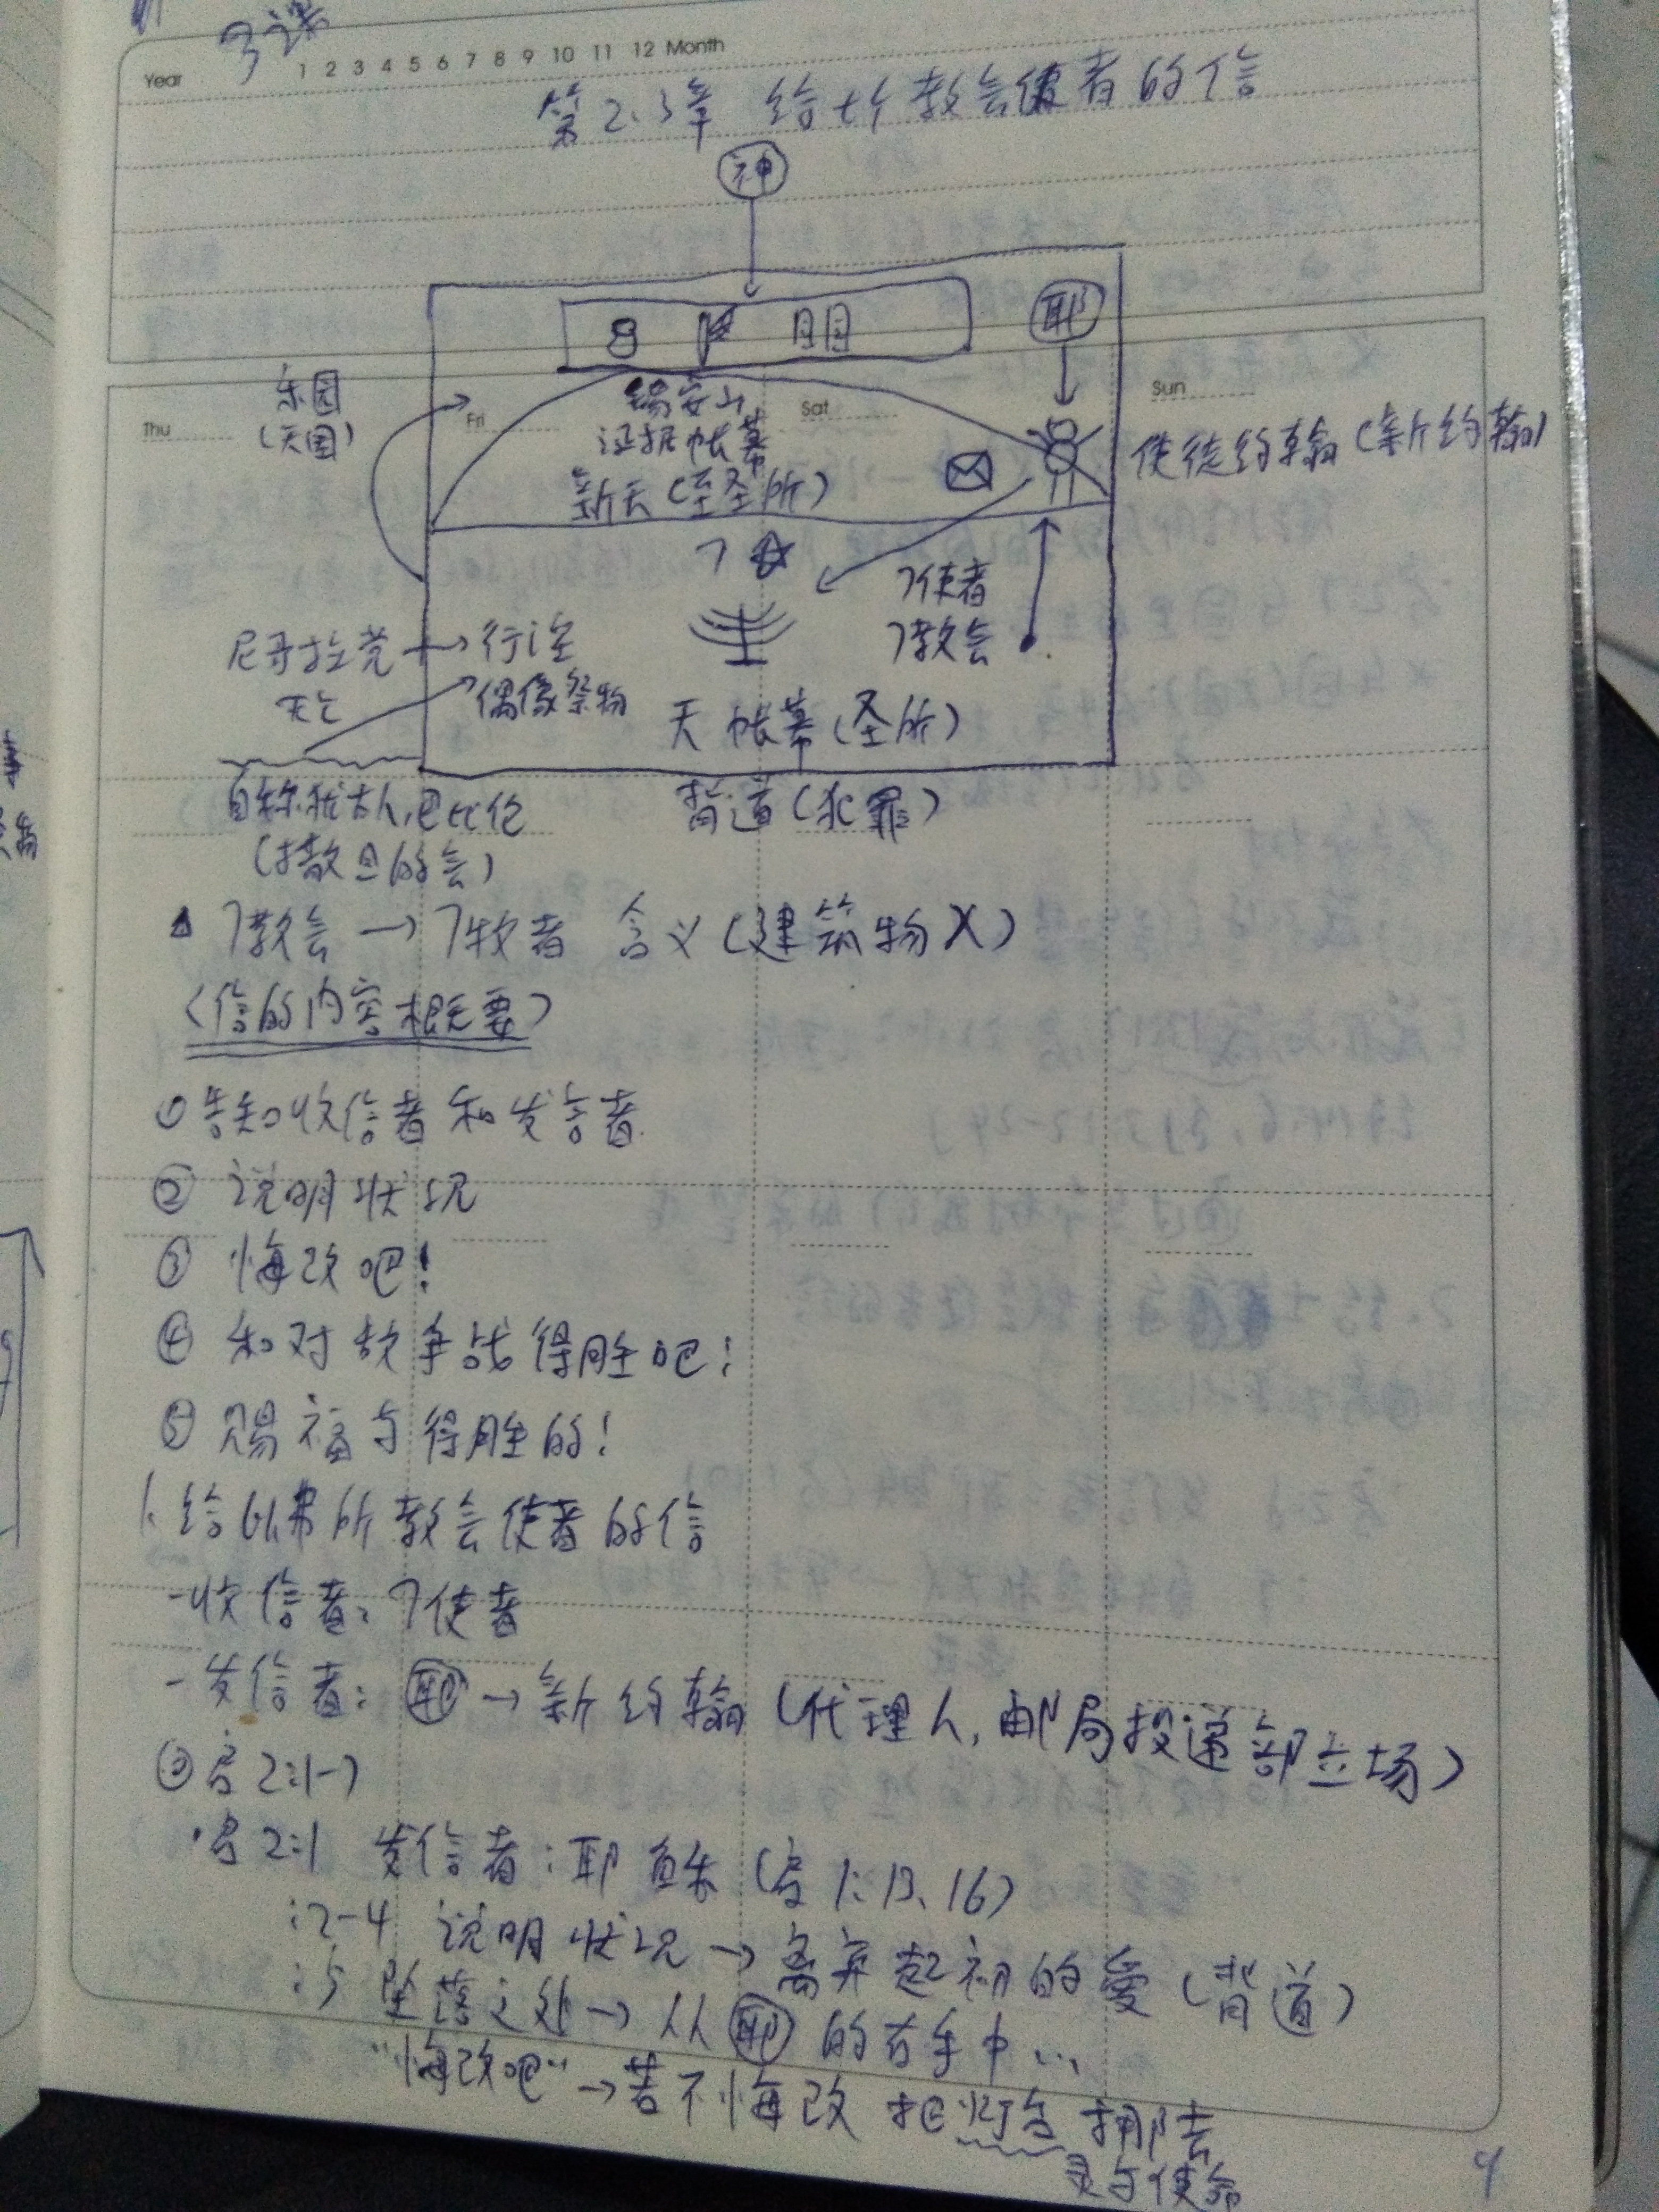 3课
Year 1 2 3 4 5 6 7 8 9 10 11 12 Month
第2.3章 给七个教会使者的信
神
耶
乐园
(天国)
Thu
Fri
Sat
Sun
锡安山
证据帐幕
新天(至圣所)
使徒约翰(新约翰)
7
7使者
7教会
尼哥拉党
行淫
偶像祭物
天帐幕(圣所)
自称犹太人,巴比伦
(撒旦的会)
背道(犯罪)
7教会→7牧者 含义(建筑物X)
〈信的内容概要〉
① 告知收信者和发言者
② 说明状况
③ 悔改吧!
④ 和对敌争战得胜吧!
⑤ 赐福与得胜的!
1. 给以弗所教会使者的信
-收信者:7使者
-发信者:耶→新约翰(代理人,邮局投递部立场)
启2:1-7
·启2:1 发信者:耶稣(启1:13、16)
:2-4 说明状况→离弃起初的爱(背道)
:5 坠落之处→从耶的右手中...
"悔改吧"→若不悔改 把灯台挪去
灵与使命
9